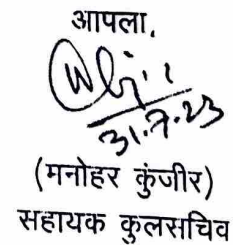 आपला,
31.7.23
(मनोहर कुंजीर)
सहायक कुलसचिव